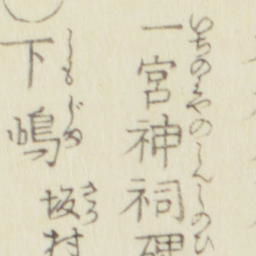 いちのみやのしんしのひ
一宮神祠碑
しもじま
下嶋
さか
坂村